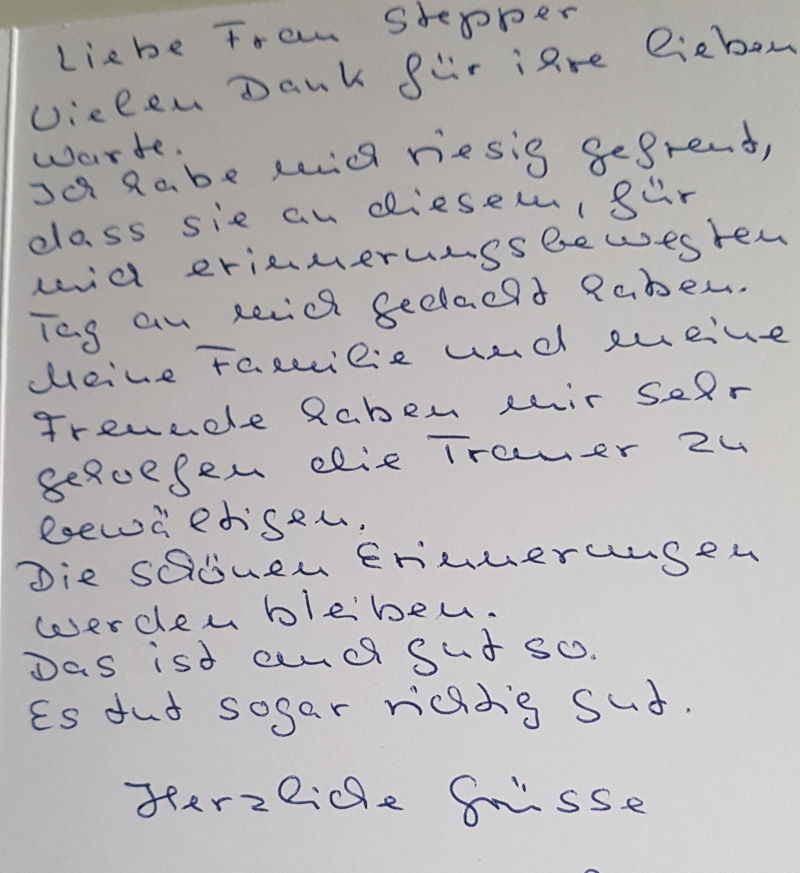 Liebe Frau Stepper
Vielen Dank für ihre lieben
Worte.
Ich habe mich riesig gefreut,
dass sie an diesem, für
mich erinnerungsbewegten
Tag an mich gedacht haben.
Meine Familie und meine
Freunde haben mir sehr
geholfen die Trauer zu
bewältigen.
Die schönen Erinnerungen
werden bleiben.
Das ist auch gut so.
Es tut sogar richtig gut.
Herzliche Grüsse